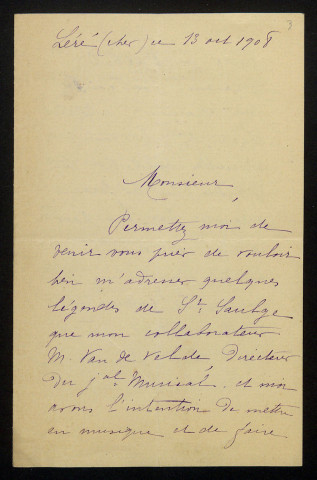 3
Léré (cher) ce 13 oct 1908
Monsieur
Permettez moi de
venir vous prier de vouloir
bien m'adresser quelques
légendes de St Saulge
que mon collaborateur
M. Van de Velde, Directeur
du jal Musical, et moi
avons l'intention de mettre
en musique et de faire